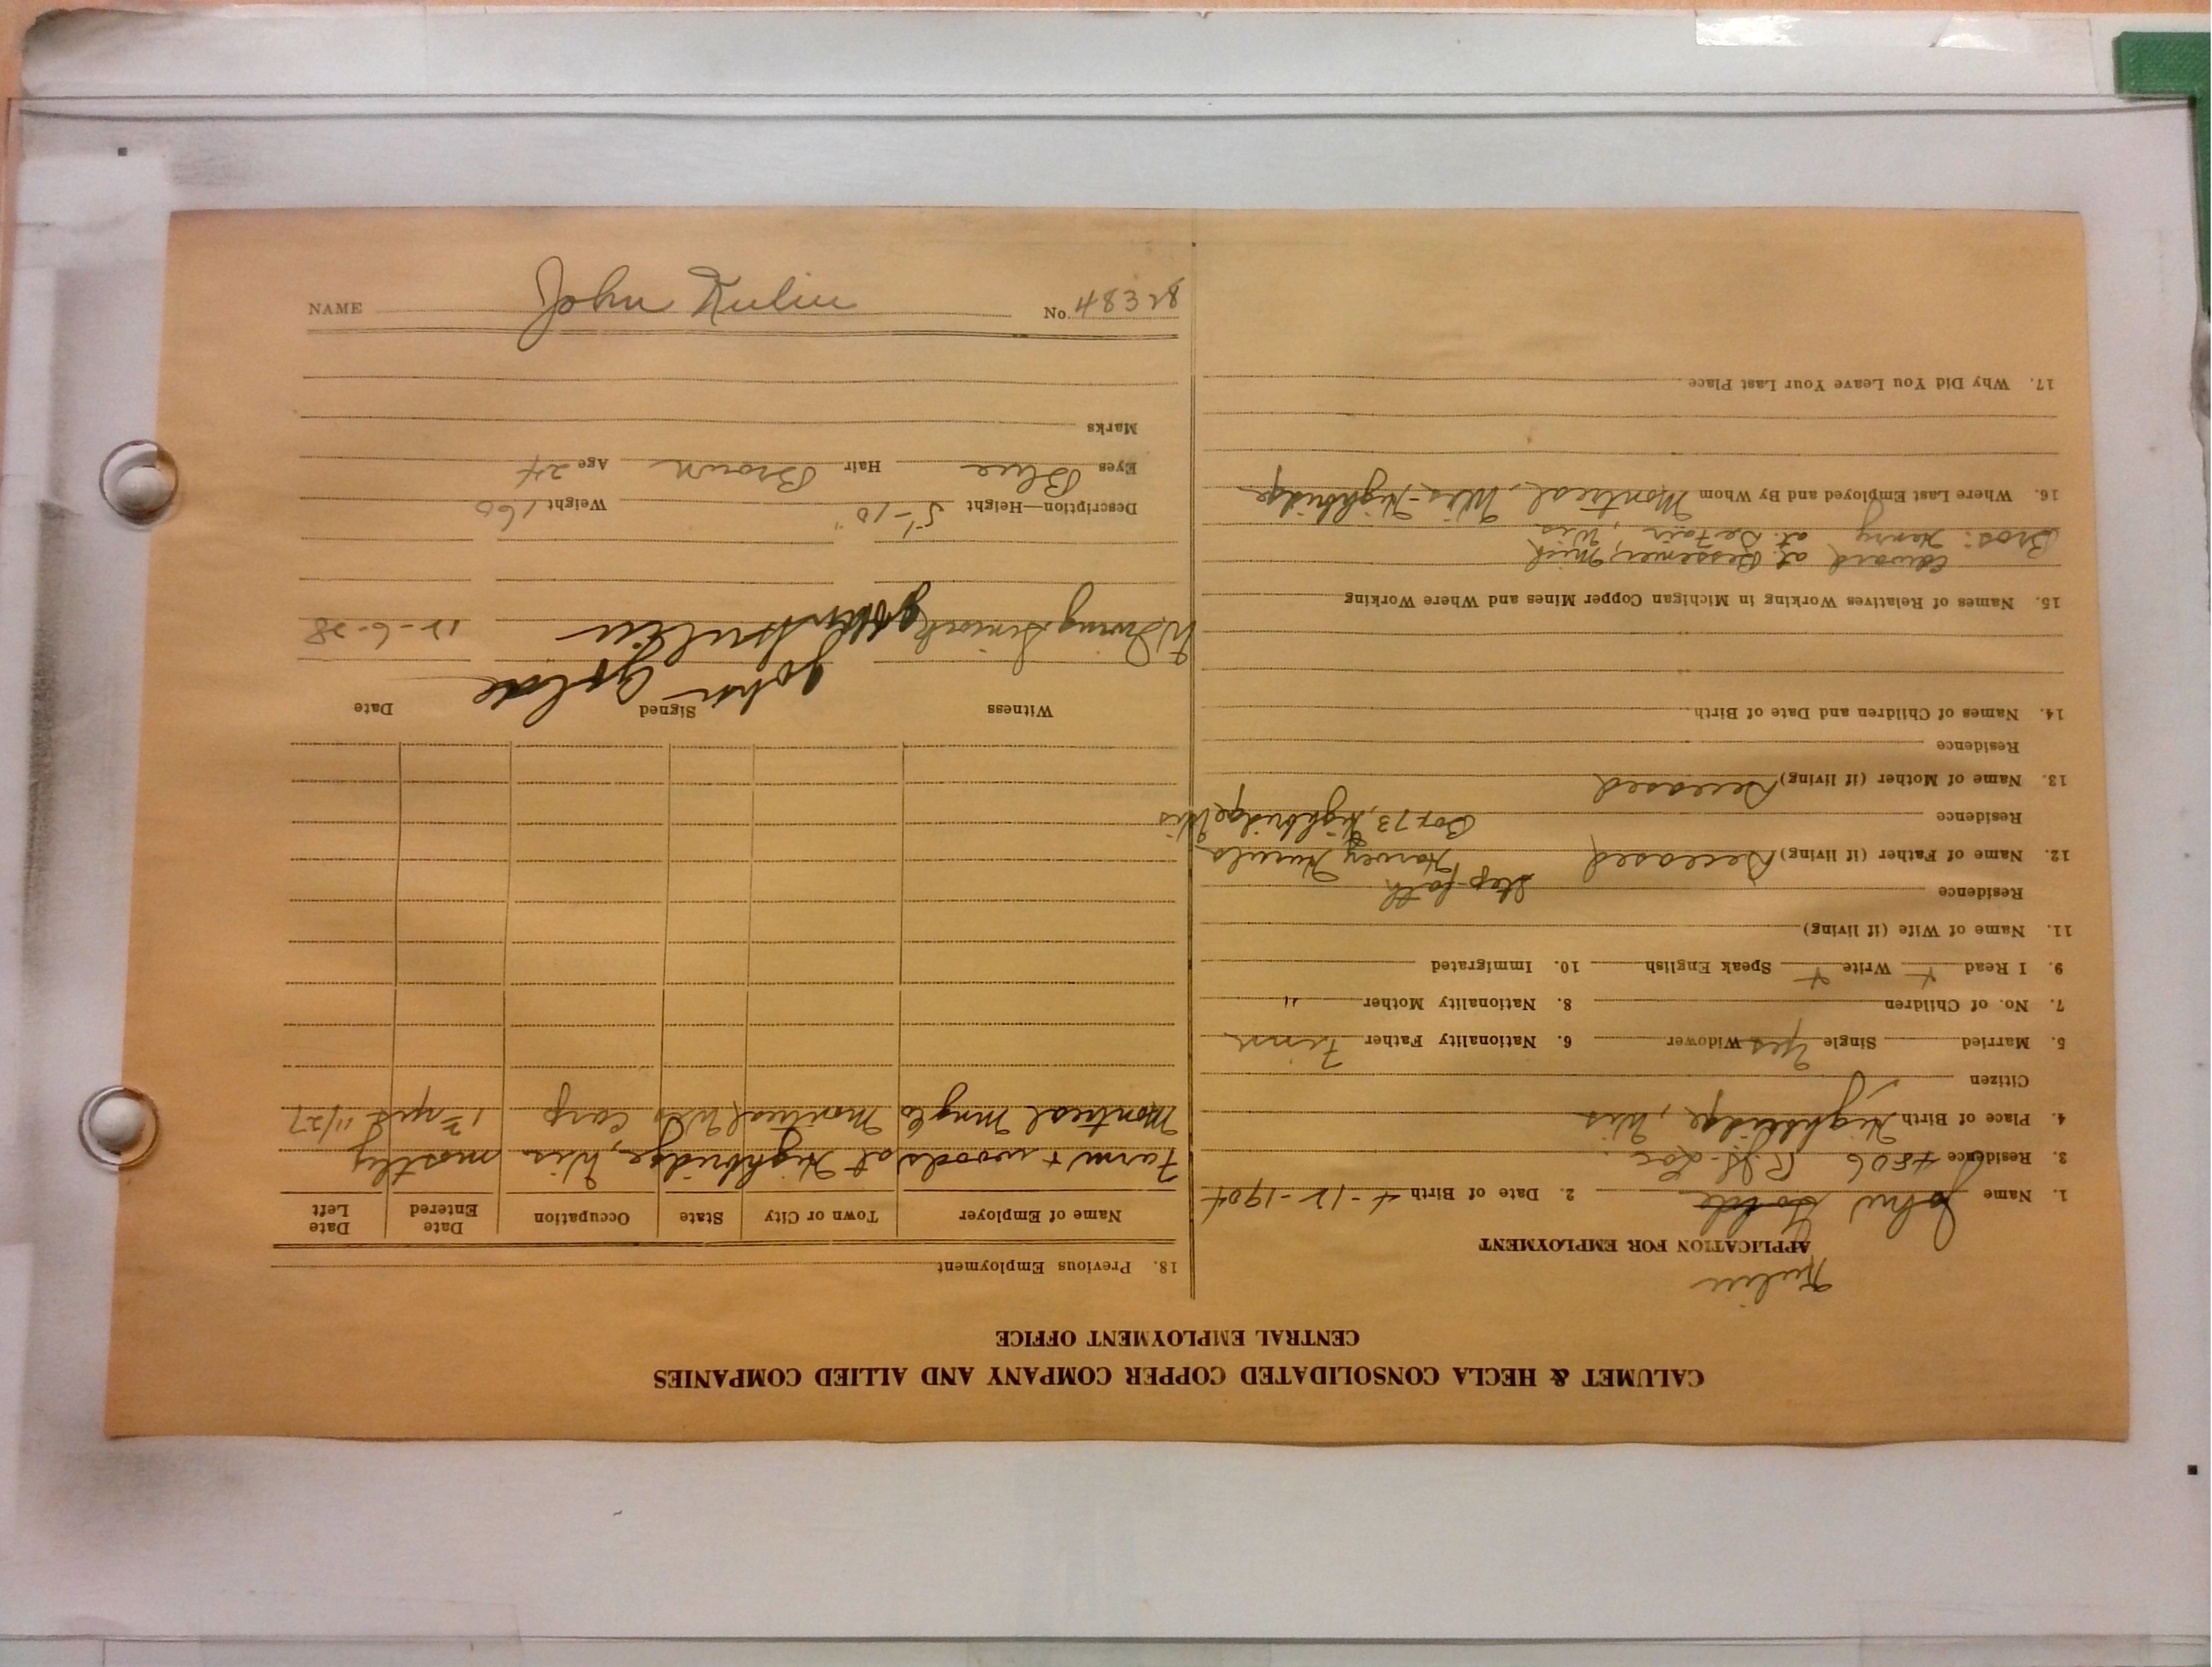 CALUMET & HECLA CONSOLIDATED COPPER COMPANY AND ALLIED COMPANIES
CENTRAL EMPLOYMENT OFFICE
APPLICATION FOR EMPLOYMENT
1. Name John 2. Date of Birth 4-12-1904
3. Residence 4806
4. Place of Birth Highbridge, Wis
Citizen
5. Married Single Yes Widower 6. Nationality Father Finn
7. No. of Children 8. Nationality Mother "
9. I Read + Write + Speak English 10. Immigrated
11. Name of Wife (if living)
Residence Step-fath
12. Name of Father (if living) Deceased Harvey
Residence Box 73, Highbridge Wis
13. Name of Mother (if living) Deceased
Residence
14. Names of Children and Date of Birth
15. Names of Relatives Working in Michigan Copper Mines and Where Working
Edward at Bessemer, Mich
Bros: Henry at Wis
16. Where Last Employed and By Whom Montreal, Wis - Highbridge
17. Why Did You Leave Your Last Place
18. Previous Employment
Name of Employer Town or City State Occupation Date Entered Date Left
Farm + woods at Highbridge, Wis mostly
Montreal Mng Co Montreal Wis 11/27
Witness Signed Date
John
John 12-6-28
Description—Height 5'-10" Weight 160
Eyes Blue Hair Brown Age 24
Marks
NAME John No. 48328